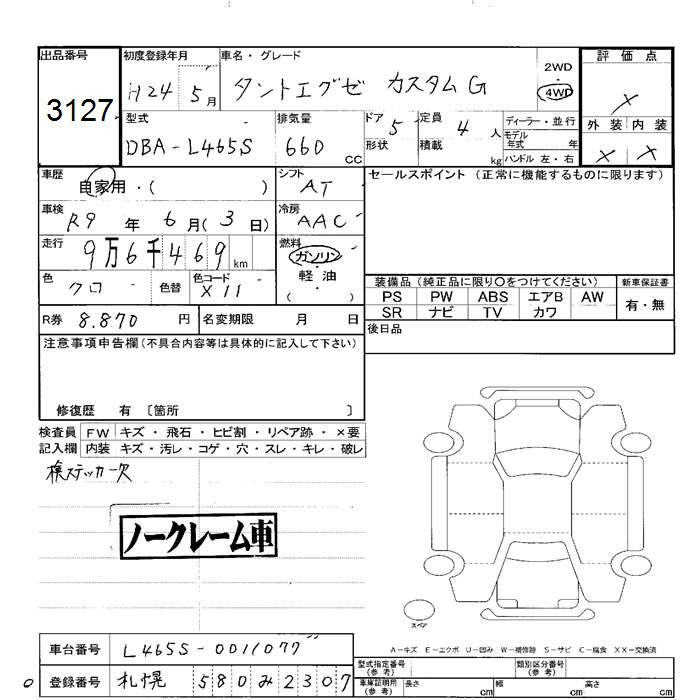 出品番号 初度登録年月 車名・グレード 2WD 評価点
3127 H24 5月 タントエグゼ カスタムG 4WD ×
型式 排気量 ドア 定員 ディーラー・並行 外装 内装
DBA-L465S 660 CC 5 4人 モデル年式 年 × ×
形状 積載 kg ハンドル 左・右
車歴 自家用・( ) シフト AT セールスポイント (正常に機能するものに限ります)
車検 R9年 6月(3日) 冷房 AAC
走行 9万6千469km 燃料 ガソリン・軽油 ( )
色 クロ 色替 色コード X11 装備品(純正品に限り○をつけてください) 新車保証書
PS PW ABS エアB AW 有・無
SR ナビ TV カワ
R券 8.870円 名変期限 月 日 後日品
注意事項申告欄(不具合内容等は具体的に記入して下さい)
修復歴 有 〔箇所 〕
検査員 FW キズ・飛石・ヒビ割・リペア跡・×要
記入欄 内装 キズ・汚レ・コゲ・穴・スレ・キレ・破レ
検ステッカー欠
ノークレーム車
スペア
A-キズ E-エクボ U-凹み W-補修跡 S-サビ C-腐食 XX-交換済
車台番号 L465S-0011077 型式指定番号(参考) 類別区分番号(参考)
登録番号 札幌 580み2307 車庫証明用(参考) 長さ cm 幅 cm 高さ cm